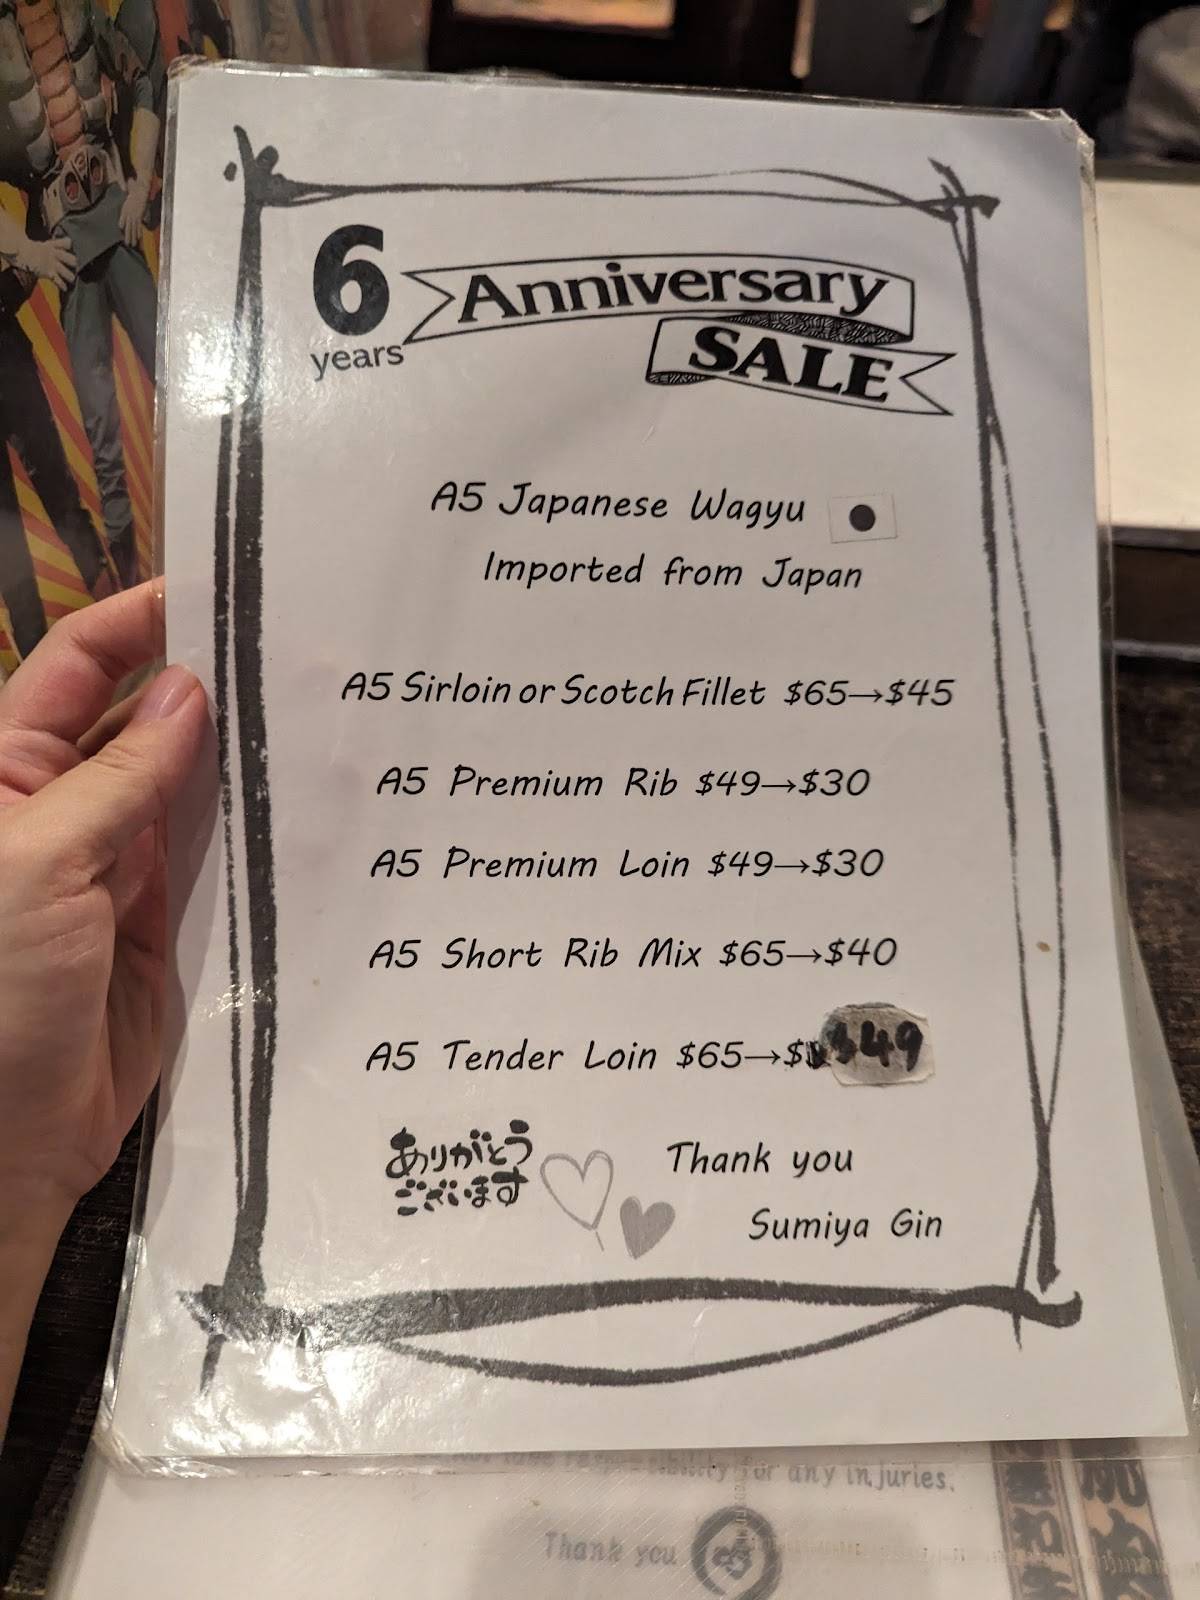 6 years
Anniversary
SALE
A5 Japanese Wagyu
Imported from Japan
A5 Sirloin or Scotch Fillet $65→$45
A5 Premium Rib $49→$30
A5 Premium Loin $49→$30
A5 Short Rib Mix $65→$40
A5 Tender Loin $65→$ $49
ありがとう
ございます
Thank you
Sumiya Gin
for any injuries.
Thank you